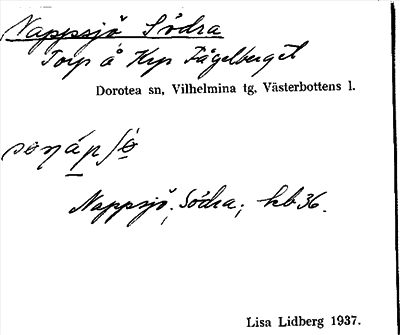 Nappsjö Södra
Torp å Krp Fågelberget
Dorotea sn, Vilhelmina tg, Västerbottens l.
Nappsjö, Södra; hb 36.
Lisa Lidberg 1937.